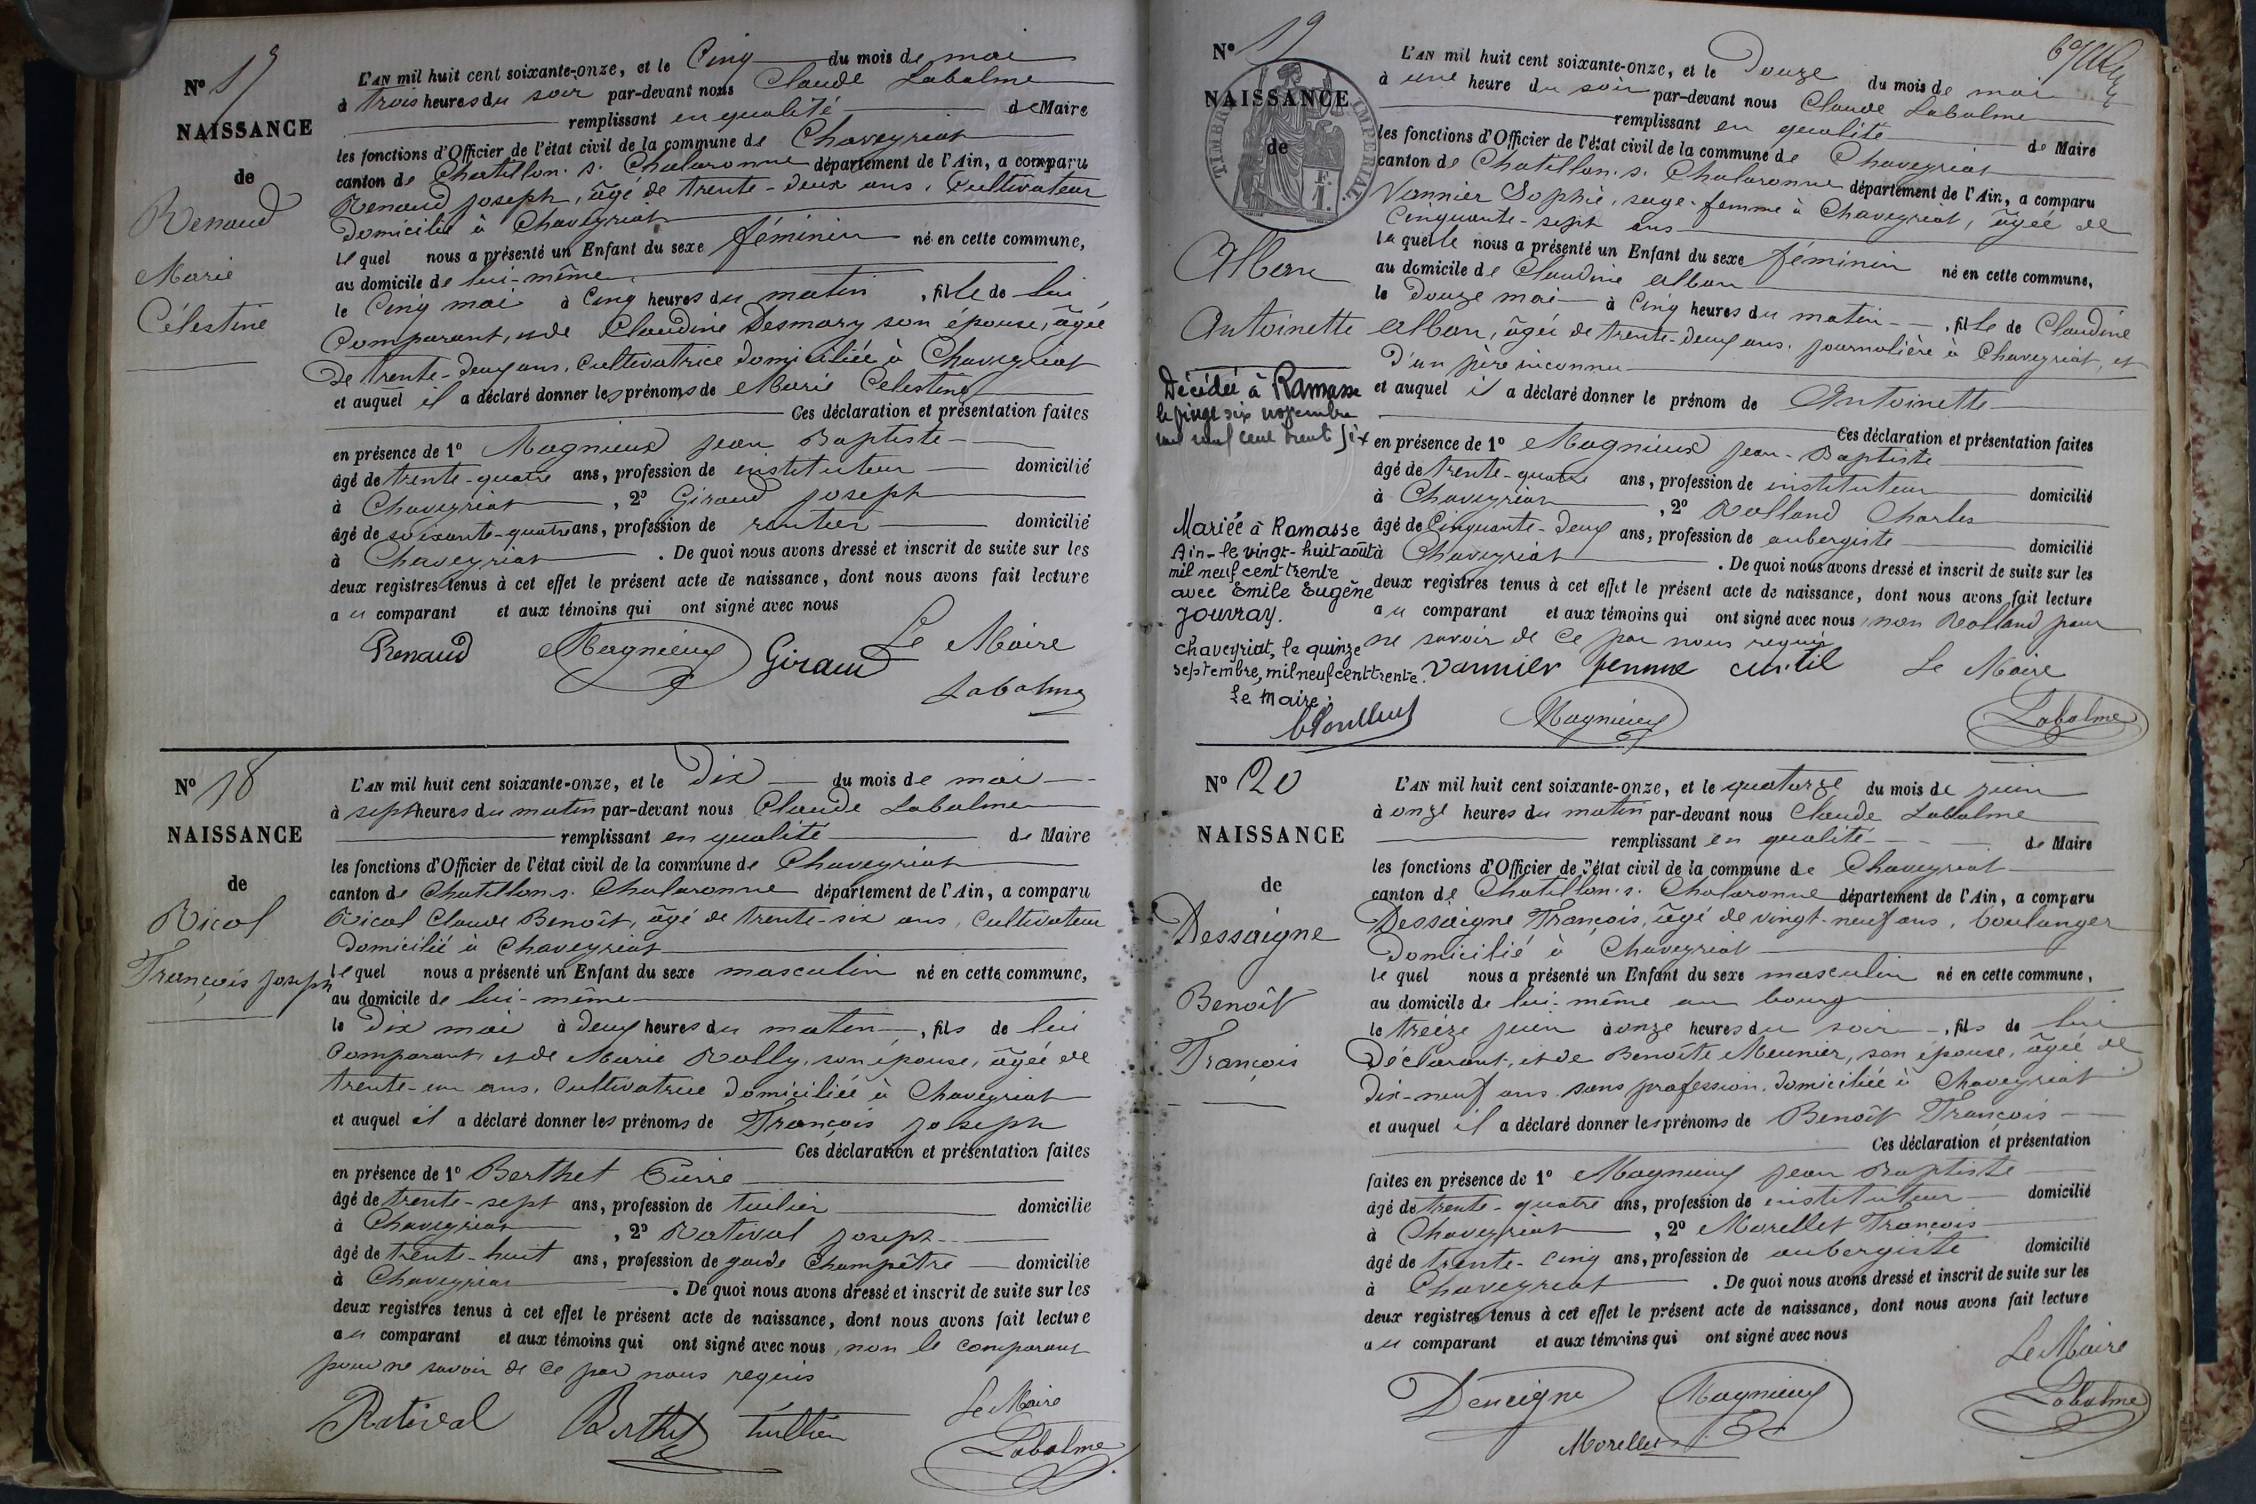 N° 17
NAISSANCE
de
Renaud
Marie
Célestine
L'AN mil huit cent soixante-onze, et le Cinq du mois de mai
à trois heures du soir par-devant nous Claude Labalme
remplissant en qualité de Maire
les fonctions d'Officier de l'état civil de la commune de Chaveyriat
canton de Chatillon s. Chalaronne département de l'Ain, a comparu
Renaud Joseph, âgé de trente-deux ans, Cultivateur
domicilié à Chaveyriat
lequel nous a présenté un Enfant du sexe féminin né en cette commune,
au domicile de lui-même
le Cinq mai à Cinq heures du matin, fille de lui
Comparant, et de Claudine Desmary son épouse, âgée
de trente-deux ans, Cultivatrice domiciliée à Chaveyriat
et auquel il a déclaré donner les prénoms de Marie Célestine
Ces déclaration et présentation faites
en présence de 1° Magnieux Jean Baptiste
âgé de trente-quatre ans, profession de instituteur domicilié
à Chaveyriat, 2° Giraud Joseph
âgé de soixante-quatre ans, profession de rentier domicilié
à Chaveyriat. De quoi nous avons dressé et inscrit de suite sur les
deux registres tenus à cet effet le présent acte de naissance, dont nous avons fait lecture
au comparant et aux témoins qui ont signé avec nous
Renaud Magnieux Giraud Le Maire
Labalme
N° 18
NAISSANCE
de
Nicol
François Joseph
L'AN mil huit cent soixante-onze, et le Dix du mois de mai
à sept heures du matin par-devant nous Claude Labalme
remplissant en qualité de Maire
les fonctions d'Officier de l'état civil de la commune de Chaveyriat
canton de Chatillon s. Chalaronne département de l'Ain, a comparu
Nicol Claude Benoît, âgé de trente-six ans, Cultivateur
domicilié à Chaveyriat
lequel nous a présenté un Enfant du sexe masculin né en cette commune,
au domicile de lui-même
le Dix mai à deux heures du matin, fils de lui
Comparant, et de Marie Rolly, son épouse, âgée de
trente-un ans, Cultivatrice domiciliée à Chaveyriat
et auquel il a déclaré donner les prénoms de François Joseph
Ces déclaration et présentation faites
en présence de 1° Berthet Pierre
âgé de trente-sept ans, profession de tuilier domicilié
à Chaveyriat, 2° Ratival Joseph
âgé de trente-huit ans, profession de garde Champêtre domicilié
à Chaveyriat. De quoi nous avons dressé et inscrit de suite sur les
deux registres tenus à cet effet le présent acte de naissance, dont nous avons fait lecture
au comparant et aux témoins qui ont signé avec nous, non le comparant
pour ne savoir de ce par nous requis
Ratival Berthet tuillier Le Maire
Labalme
N° 19
NAISSANCE
de
TIMBRE IMPERIAL
F.
1.
Alban
Antoinette
Décédée à Ramasse
le vingt six novembre
mil neuf cent trent six
Mariée à Ramasse
Ain - le vingt-huit août
mil neuf cent trente
avec Emile Eugène
Jouvray.
Chaveyriat, le quinze
septembre, mil neuf cent trente.
Le Maire:
L'AN mil huit cent soixante-onze, et le Douze du mois de mai
à une heure du soir par-devant nous Claude Labalme
remplissant en qualité de Maire
les fonctions d'Officier de l'état civil de la commune de Chaveyriat
canton de Chatillon. s. Chalaronne département de l'Ain, a comparu
Vannier Sophie, sage-femme à Chaveyriat, âgée de
Cinquante-sept ans
laquelle nous a présenté un Enfant du sexe féminin né en cette commune,
au domicile de Claudine Alban
le Douze mai à Cinq heures du matin, fille de Claudine
Alban, âgée de trente-deux ans, journalière à Chaveyriat, et
d'un père inconnu
et auquel il a déclaré donner le prénom de Antoinette
Ces déclaration et présentation faites
en présence de 1° Magnieux Jean-Baptiste
âgé de trente-quatre ans, profession de instituteur domicilié
à Chaveyriat, 2° Rolland Charles
âgé de Cinquante-deux ans, profession de aubergiste domicilié
à Chaveyriat. De quoi nous avons dressé et inscrit de suite sur les
deux registres tenus à cet effet le présent acte de naissance, dont nous avons fait lecture
au comparant et aux témoins qui ont signé avec nous, non Rolland pour
ne savoir de ce par nous requis
vannier femme Le Maire
Magnieux Labalme
N° 20
NAISSANCE
de
Dessaigne
Benoît
François
L'AN mil huit cent soixante-onze, et le quatorze du mois de juin
à onze heures du matin par-devant nous Claude Labalme
remplissant en qualité de Maire
les fonctions d'Officier de l'état civil de la commune de Chaveyriat
canton de Chatillon. s. Chalaronne département de l'Ain, a comparu
Dessaigne François, âgé de vingt-neuf ans, boulanger
domicilié à Chaveyriat
lequel nous a présenté un Enfant du sexe masculin né en cette commune,
au domicile de lui-même au bourg
le treize juin à onze heures du soir, fils de lui
Déclarant, et de Benoîte Meunier, son épouse, âgée de
dix-neuf ans sans profession, domiciliée à Chaveyriat
et auquel il a déclaré donner les prénoms de Benoît François
Ces déclaration et présentation
faites en présence de 1° Magnieux Jean Baptiste
âgé de trente-quatre ans, profession de instituteur domicilié
à Chaveyriat, 2° Morellet François
âgé de trente-cinq ans, profession de aubergiste domicilié
à Chaveyriat. De quoi nous avons dressé et inscrit de suite sur les
deux registres tenus à cet effet le présent acte de naissance, dont nous avons fait lecture
au comparant et aux témoins qui ont signé avec nous
Le Maire
Dessaigne Magnieux Labalme
Morellet